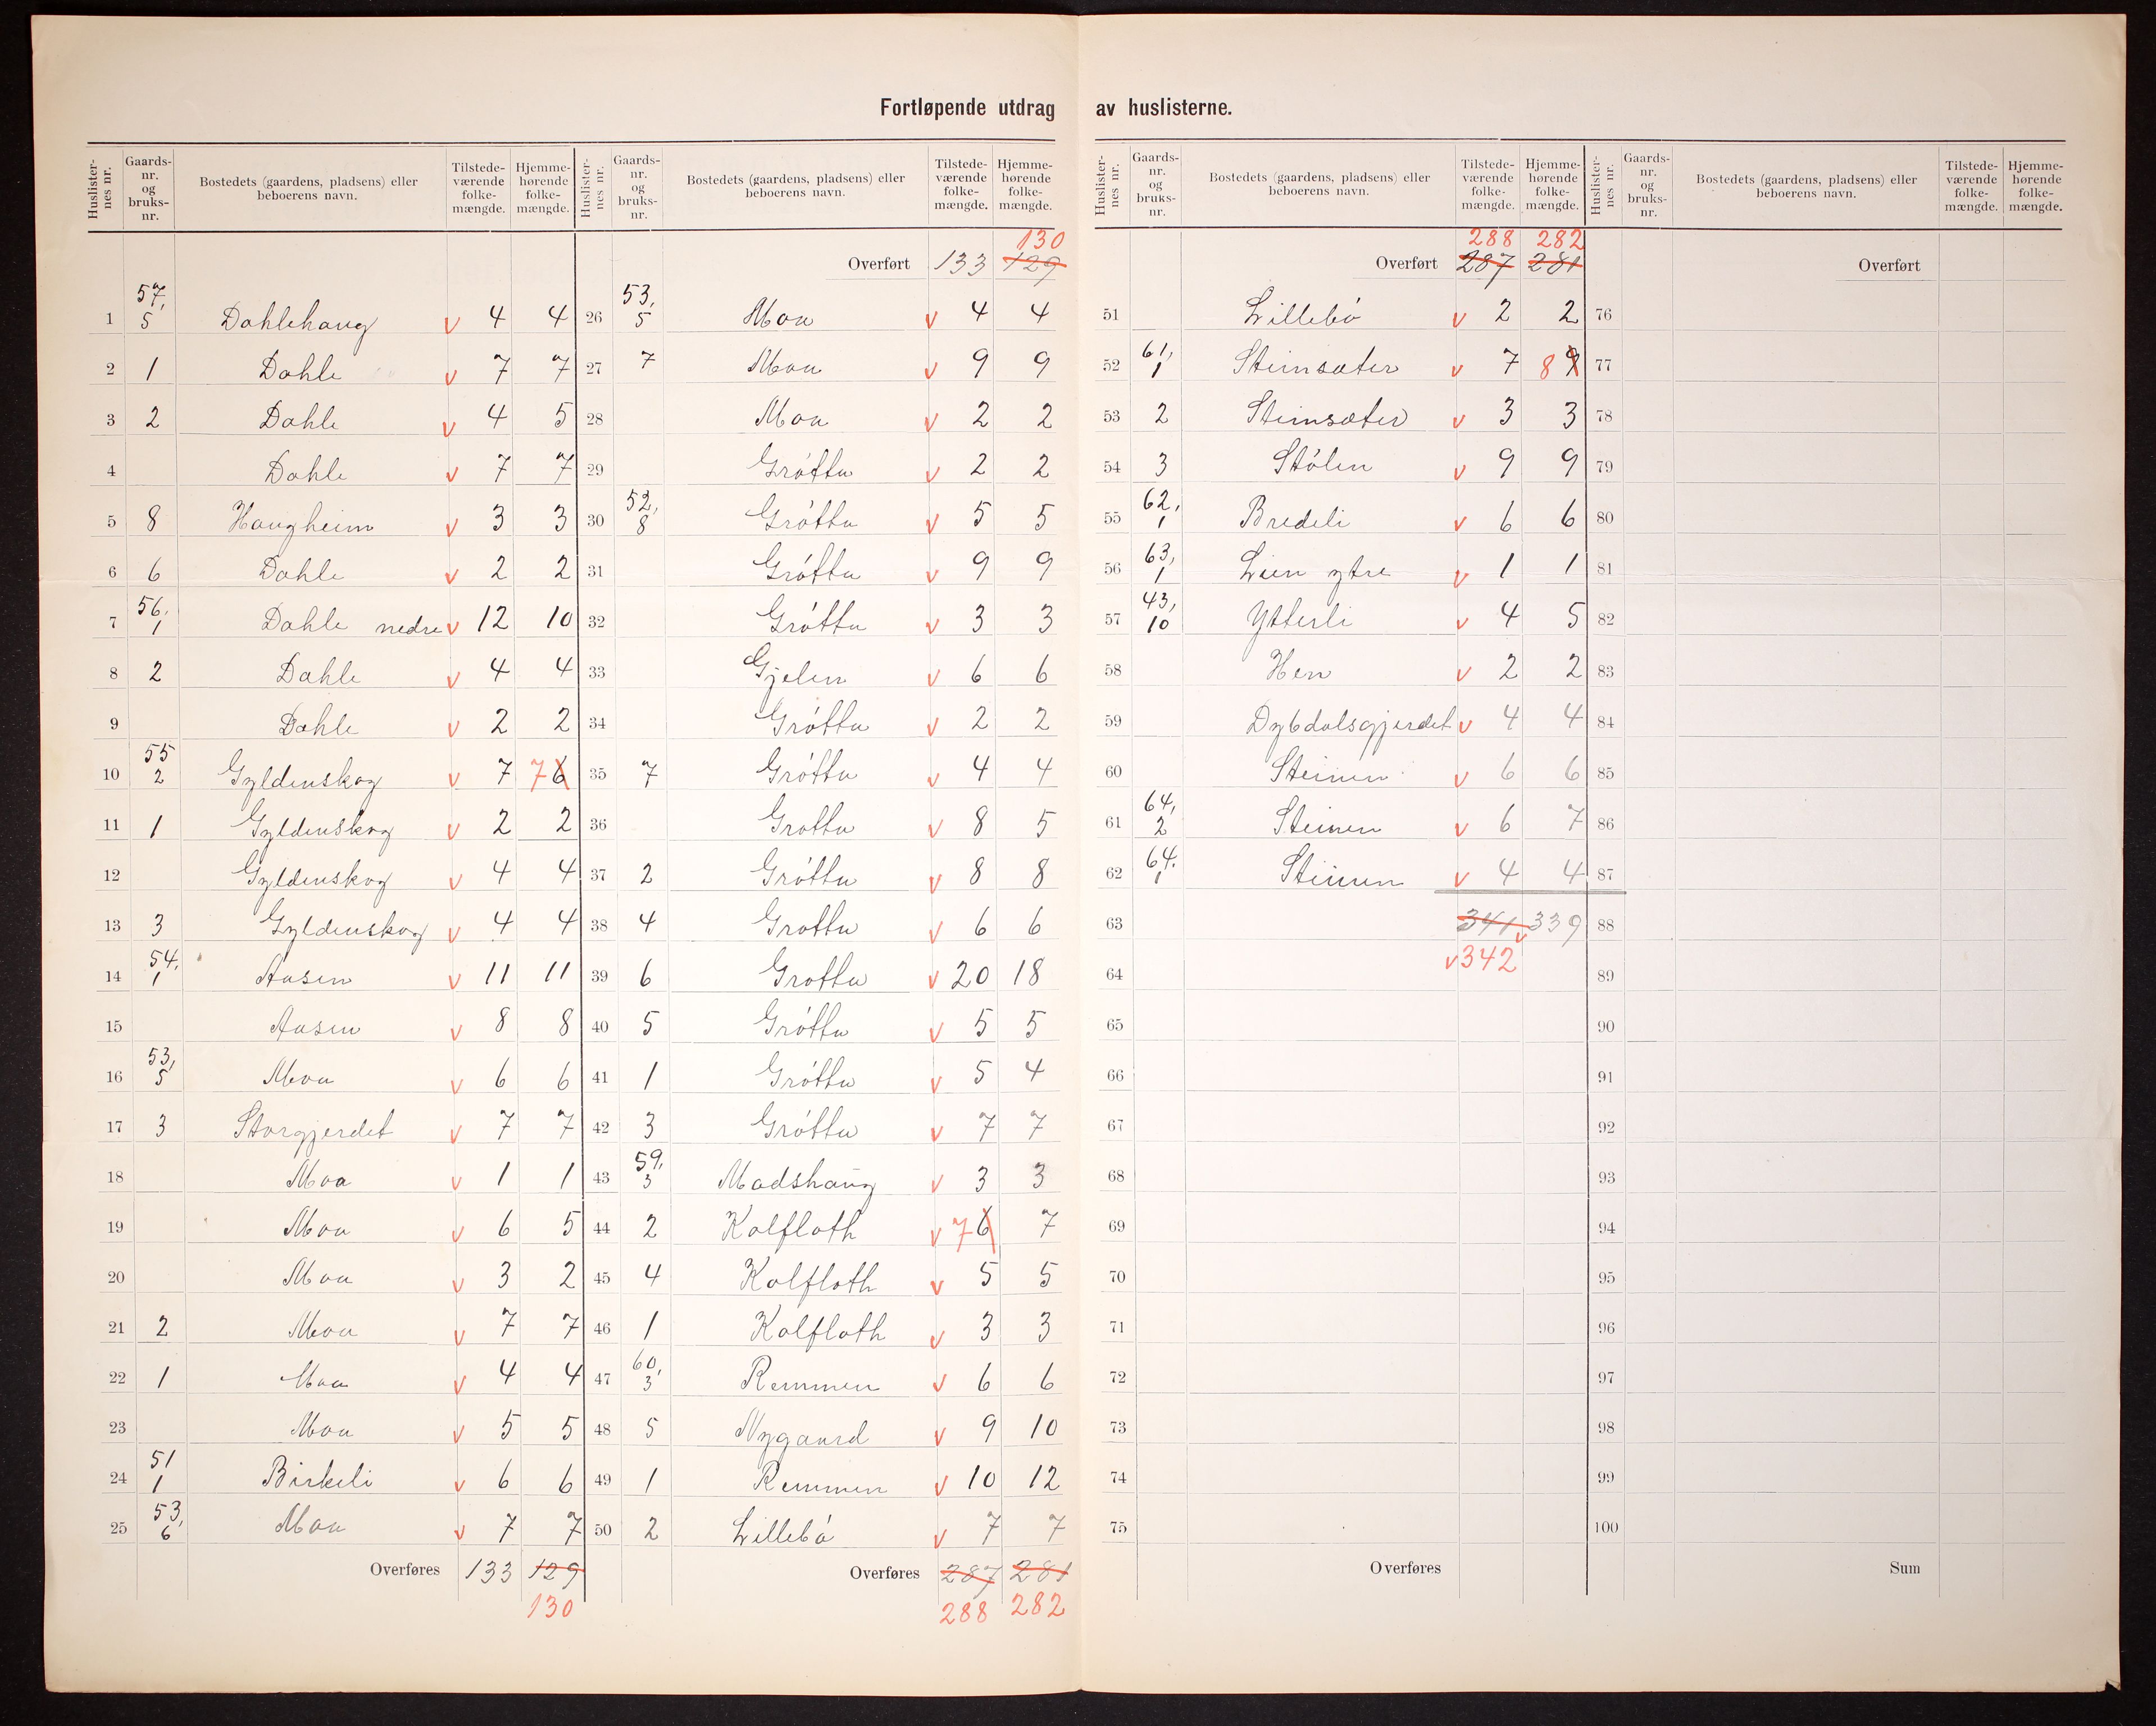 Fortløpende utdrag av huslisterne.
Huslister- nes nr. | Gaards- nr. og bruks- nr. | Bostedets (gaardens, pladsens) eller beboerens navn. | Tilstede- værende folke- mængde. | Hjemme- hørende folke- mængde.
1 57, 5 Dahlehaug v 4 4
2 1 Dahle v 7 7
3 2 Dahle v 4 5
4 Dahle v 7 7
5 8 Haugheim v 3 3
6 6 Dahle v 2 2
7 56, 1 Dahle nedre v 12 10
8 2 Dahle v 4 4
9 Dahle v 2 2
10 55 2 Gyldenskog v 7 7 6
11 1 Gyldenskog v 2 2
12 Gyldenskog v 4 4
13 3 Gyldenskog v 4 4
14 54, 1 Aasen v 11 11
15 Aasen v 8 8
16 53, 5 Moa v 6 6
17 3 Storgjerdet v 7 7
18 Moa v 1 1
19 Moa v 6 5
20 Moa v 3 2
21 2 Moa v 7 7
22 1 Moa v 4 4
23 Moa v 5 5
24 51 1 Birkeli v 6 6
25 53, 6 Moa v 7 7
Overføres 133 129
130
Huslister- nes nr. | Gaards- nr. og bruks- nr. | Bostedets (gaardens, pladsens) eller beboerens navn. | Tilstede- værende folke- mængde. | Hjemme- hørende folke- mængde.
130
Overført 133 129
26 53, 5 Moa v 4 4
27 7 Moa v 9 9
28 Moa v 2 2
29 Grótta v 2 2
30 52, 8 Grótta v 5 5
31 Grótta v 9 9
32 Grótta v 3 3
33 Gjelen v 6 6
34 Grótta v 2 2
35 7 Grótta v 4 4
36 Grotta v 8 5
37 2 Grótta v 8 8
38 4 Grotta v 6 6
39 6 Grotta v 20 18
40 5 Grótta v 5 5
41 1 Grótta v 5 4
42 3 Grótta v 7 7
43 59, 3 Madshaug v 3 3
44 2 Kalfloth v 7 6 7
45 4 Kalfloth v 5 5
46 1 Kalfloth v 3 3
47 60, 3 Remmen v 6 6
48 5 Nygaard v 9 10
49 1 Remmen v 10 12
50 2 Lillebó v 7 7
Overføres 287 281
288 282
Huslister- nes nr. | Gaards- nr. og bruks- nr. | Bostedets (gaardens, pladsens) eller beboerens navn. | Tilstede- værende folke- mængde. | Hjemme- hørende folke- mængde.
288 282
Overført 287 281
51 Lillebó v 2 2
52 61, 1 Steinsæter v 7 8 9
53 2 Steinsæter v 3 3
54 3 Stólen v 9 9
55 62, 1 Bredeli v 6 6
56 63, 1 Lien ytre v 1 1
57 43, 10 Ytterli v 4 5
58 Hen v 2 2
59 Dybdalsgjerdet v 4 4
60 Steinen v 6 6
61 64, 2 Steinen v 6 7
62 64. 1 Steinen v 4 4
63 341 v 339
64 v 342
65
66
67
68
69
70
71
72
73
74
75
Overføres
Huslister- nes nr. | Gaards- nr. og bruks- nr. | Bostedets (gaardens, pladsens) eller beboerens navn. | Tilstede- værende folke- mængde. | Hjemme- hørende folke- mængde.
Overført
76
77
78
79
80
81
82
83
84
85
86
87
88
89
90
91
92
93
94
95
96
97
98
99
100
Sum